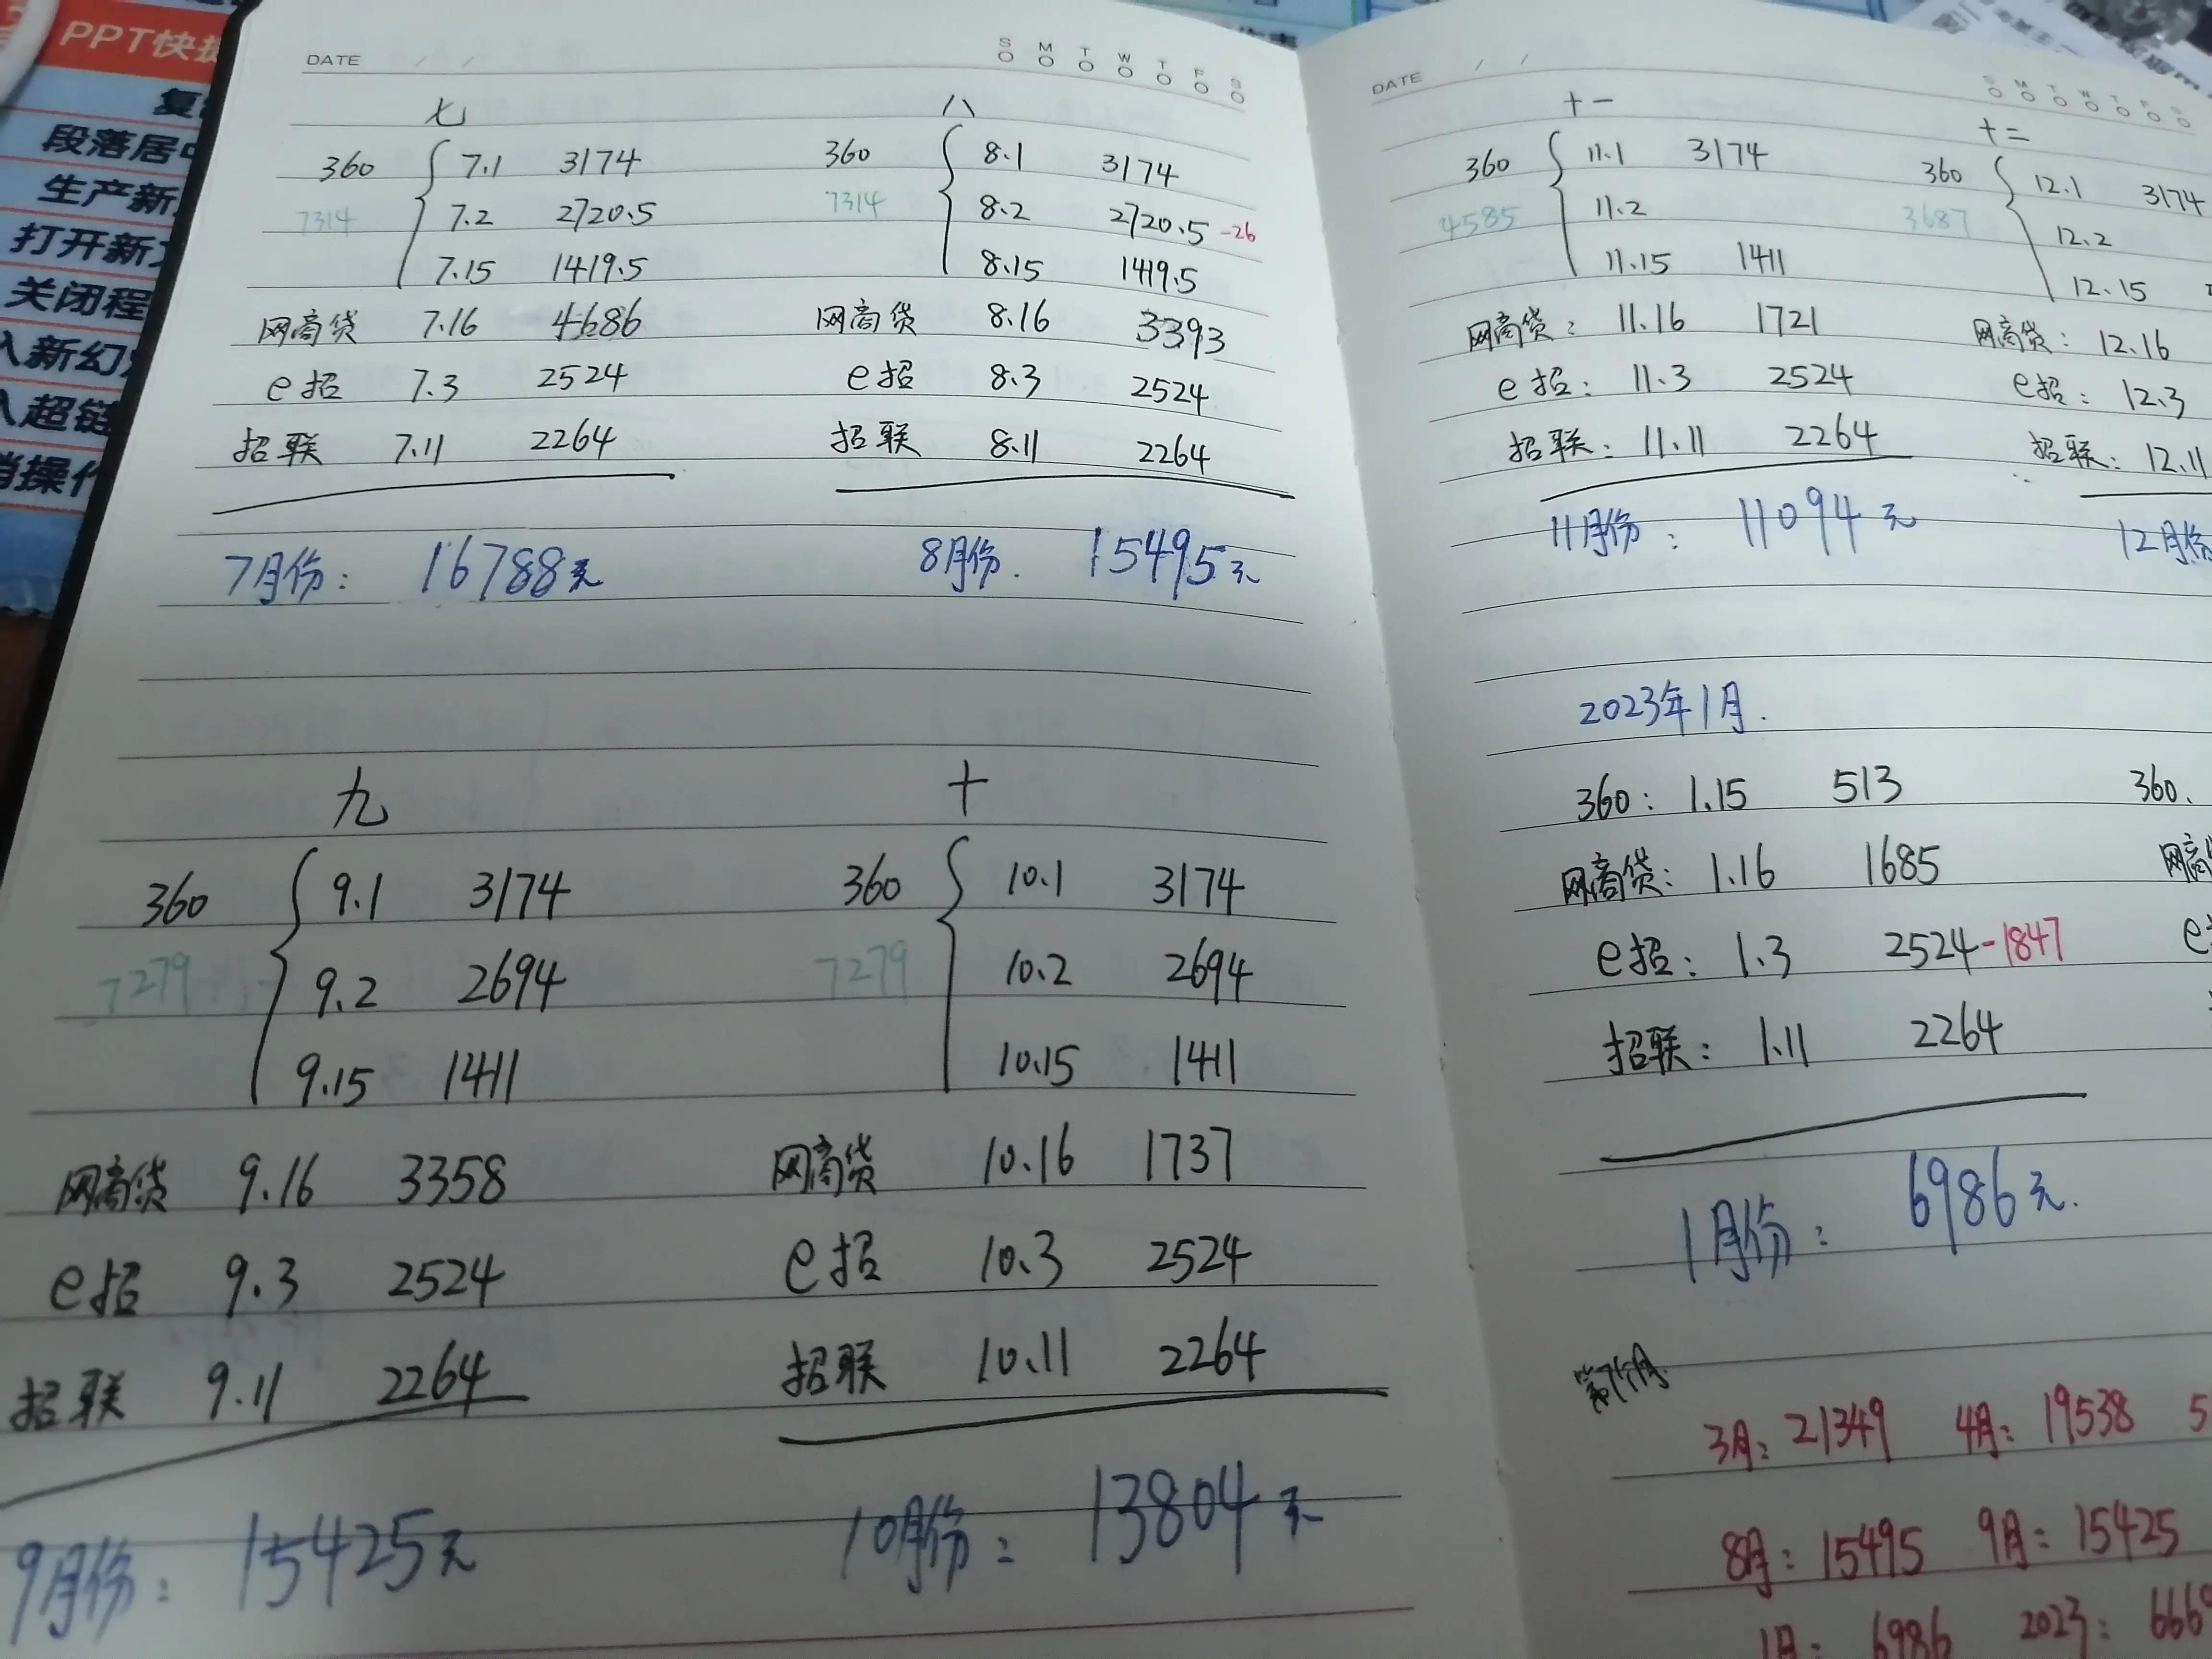 PPT快捷
段落居中
生产新
打开新
关闭程
入新幻
入超链
消操作
DATE / / S M T W T F S
七 八
360 7.1 3174 360 8.1 3174
7314 7.2 2720.5 7314 8.2 2720.5 -26
7.15 1419.5 8.15 1419.5
网商贷 7.16 4686 网商贷 8.16 3393
e招 7.3 2524 e招 8.3 2524
招联 7.11 2264 招联 8.11 2264
7月份: 16788元 8月份. 15495元
九 十
360 9.1 3174 360 10.1 3174
7279 9.2 2694 7279 10.2 2694
9.15 1411 10.15 1411
网商贷 9.16 3358 网商贷 10.16 1737
e招 9.3 2524 e招 10.3 2524
招联 9.11 2264 招联 10.11 2264
9月份: 15425元 10月份: 13804元
DATE / / S M T W T F S
十一 十二
360 11.1 3174 360 12.1 3174
4585 11.2 3687 12.2
11.15 1411 12.15
网商贷: 11.16 1721 网商贷: 12.16
e招: 11.3 2524 e招: 12.3
招联: 11.11 2264 招联: 12.11
11月份: 11094元 12月份
2023年1月.
360: 1.15 513 360.
网商贷: 1.16 1685 网商
e招: 1.3 2524-1847 e
招联: 1.11 2264
1月份: 6986元.
3月: 21349 4月: 19538 5
8月: 15495 9月: 15425
1月: 6986 2023: 666